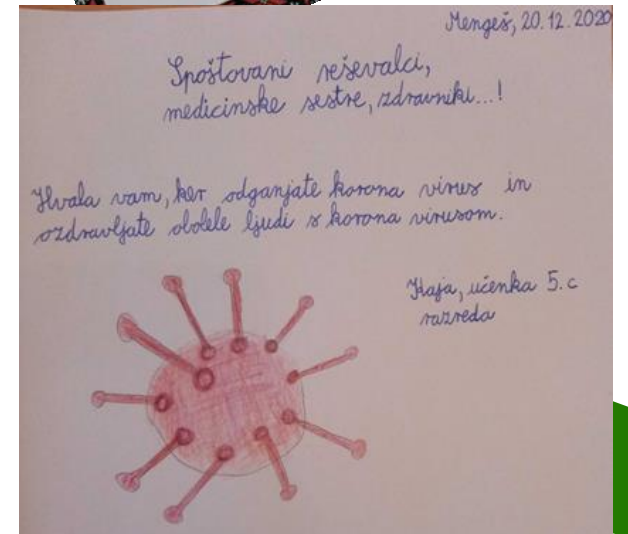 Mengeš, 20.12.2020
Spoštovani reševalci,
medicinske sestre, zdravniki...!
Hvala vam, ker odganjate korona virus in
ozdravljate obolele ljudi s korona virusom.
Kaja, učenka 5.c
razreda